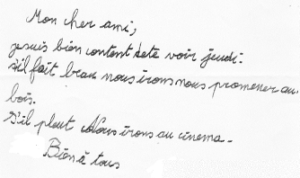 Mon cher ami,
je suis bien content de te voir jeudi.
S'il fait beau nous irons nous promener au
bois.
S'il pleut Nous irons au cinema.
Bien à tous